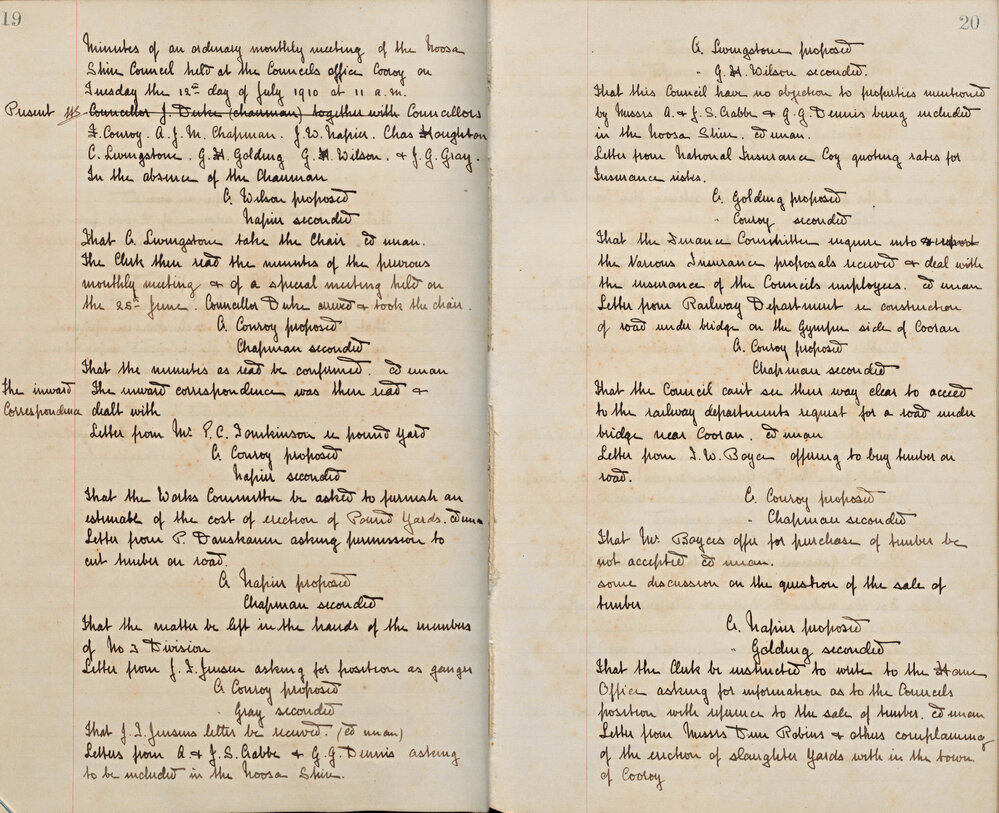 19
Minutes of an ordinary monthly meeting of the Noosa
Shire Council held at the Councils office Cooroy on
Tuesday the 12th day of July 1910 at 11 a.m.
Present Councillor J. Duke (chairman) together with Councillors
F. Conroy. A. J. M. Chapman. J. W. Napier. Chas Houghton
C. Livingstone. G. H. Golding G. H. Wilson. & J. G. Gray.
In the absence of the Chairman
C. Wilson proposed
Napier seconded
That C. Livingstone take the Chair cd unan.
The Clerk then read the minutes of the previous
monthly meeting & of a special meeting held on
the 25th June. Councillor Duke arrived & took the chair.
C. Conroy proposed
Chapman seconded
That the minutes as read be confirmed. cd unan
The inward Correspondence
The inward correspondence was then read &
dealt with
Letter from Mr P. C. Tomkinson re pound yard
C. Conroy proposed
Napier seconded
That the Works Committee be asked to furnish an
estimate of the cost of erection of Pound Yards. cd una
Letter from P. Danskanen asking permission to
cut timber on road.
C. Napier proposed
Chapman seconded
That the matter be left in the hands of the members
of No 3 Division
Letter from J. F. Jensen asking for position as ganger
C. Conroy proposed
" Gray seconded
That J. F. Jensens letter be received. (cd unan)
Letters from A & J. S. Crabbe & G. G. Dennis asking
to be included in the Noosa Shire.
20
C. Livingstone proposed
" G. H. Wilson seconded.
That this Council have no objection to properties mentioned
by Messrs A & J. S. Crabbe & G. G. Dennis being included
in the Noosa Shire. cd unan.
Letter from National Insurance Coy quoting rates for
Insurance risks.
C. Golding proposed
" Conroy seconded
That the Finance Committee inquire into & report
the Various Insurance proposals received & deal with
the insurance of the Councils employees. cd unan
Letter from Railway Department re construction
of road under bridge on the Gympie side of Cooran
C. Conroy proposed
Chapman seconded
That the Council cant see their way clear to acceed
to the railway departments request for a road under
bridge near Cooran. cd unan
Letter from J. W. Boyce offering to buy timber on
road.
C. Conroy proposed
" Chapman seconded
That Mr. Boyces offer for purchase of timber be
not accepted cd unan.
some discussion on the question of the sale of
timber
C. Napier proposed
" Golding seconded
That the Clerk be instructed to write to the Home
Office asking for information as to the Councils
position with reference to the sale of timber. cd unan
Letter from Messrs Dun Robins & others complaining
of the erection of slaughter Yards with in the town
of Cooroy